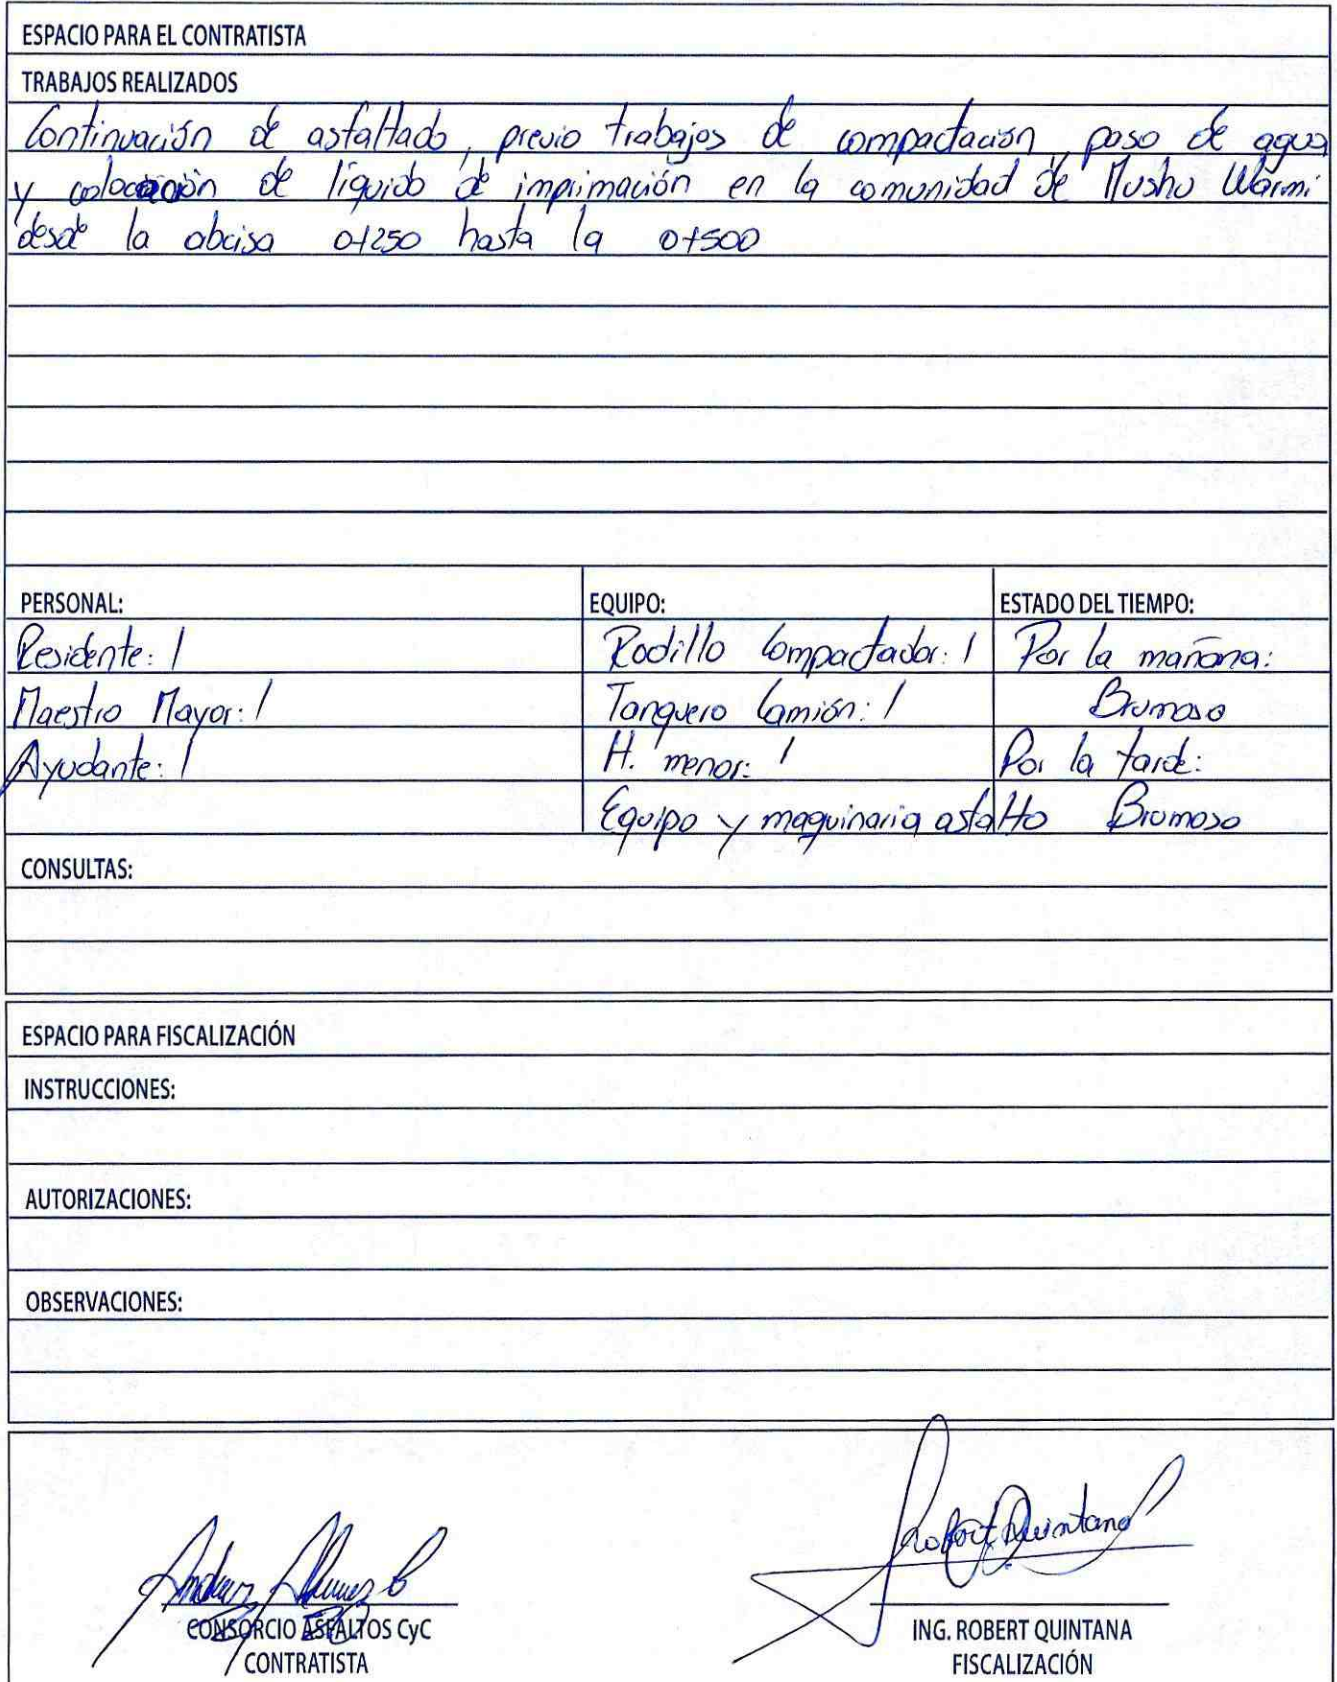 ESPACIO PARA EL CONTRATISTA
TRABAJOS REALIZADOS
Continuación de asfaltado, previo trabajos de compactación, paso de agua
y colocación de líquido de imprimación en la comunidad de Mushu Warmi
desde la abcisa 0+250 hasta la 0+500
PERSONAL:
Residente: 1
Maestro Mayor: 1
Ayudante: 1
EQUIPO:
Rodillo Compactador: 1
Tanquero Camión: 1
H. menor: 1
Equipo y maquinaria asfalto
ESTADO DEL TIEMPO:
Por la mañana:
Brumoso
Por la tarde:
Brumoso
CONSULTAS:
ESPACIO PARA FISCALIZACIÓN
INSTRUCCIONES:
AUTORIZACIONES:
OBSERVACIONES:
CONSORCIO ASFALTOS CyC
CONTRATISTA
Robert Quintana
ING. ROBERT QUINTANA
FISCALIZACIÓN